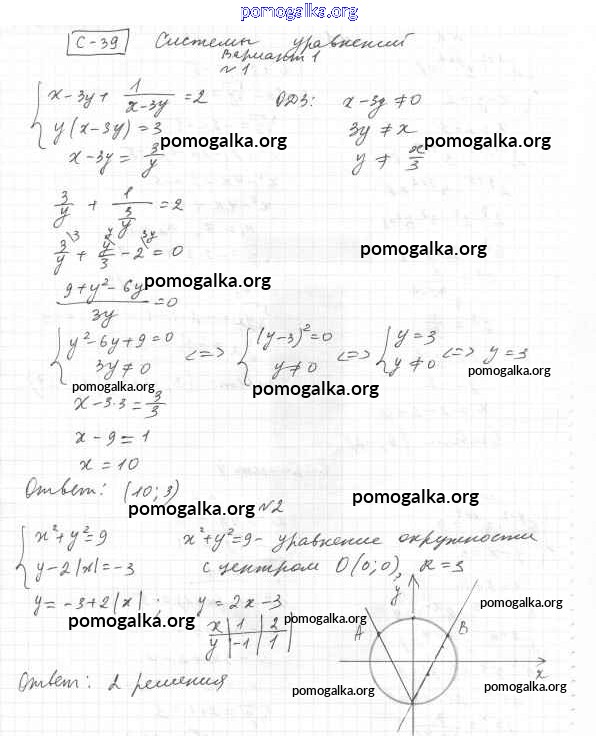 pomogalka.org
С-39 Системы уравнений
Вариант 1
№1
{ x-3y + 1/(x-3y) = 2 ОДЗ: x-3y ≠ 0
y(x-3y) = 3 3y ≠ x
x-3y = 3/y pomogalka.org y ≠ x/3 pomogalka.org
3/y + 1/(3/y) = 2
3/y + y/3 - 2 = 0 pomogalka.org
(9+y²-6y)/3y = 0 pomogalka.org
{ y²-6y+9=0 <=> { (y-3)²=0 <=> { y=3 <=> y=3
3y≠0 y≠0 y≠0 pomogalka.org
pomogalka.org pomogalka.org
x-3·3 = 3/3
x-9=1
x=10
Ответ: (10;3)
pomogalka.org №2 pomogalka.org
{ x²+y²=9 x²+y²=9 - уравнение окружности
y-2|x|=-3 с центром O(0;0), R=3
y=-3+2|x|; y=2x-3 y pomogalka.org
pomogalka.org x | 1 | 2 pomogalka.org A B
y | -1 | 1
Ответ: 2 решения x
pomogalka.org pomogalka.org